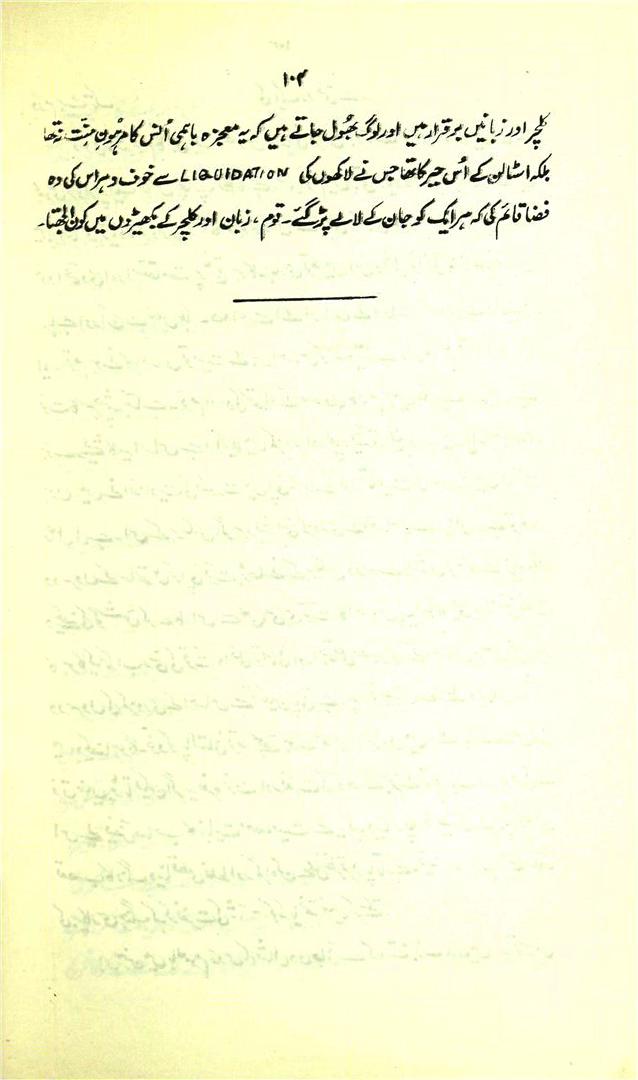 ۱۰۴
کلچر اور زبانیں برقرار ہیں اور لوگ بھُول جاتے ہیں کہ یہ معجزہ باہمی اُنس کا مرہُونِ منّت نہ تھا
بلکہ اسٹالن کے اُس جبر کا تھا جس نے لاکھوں کی LIQUIDATION سے خوف و ہراس کی وہ
فضا قائم کی کہ ہر ایک کو جان کے لالے پڑ گئے۔ قوم، زبان اور کلچر کے بکھیڑوں میں کون اُلجھتا۔